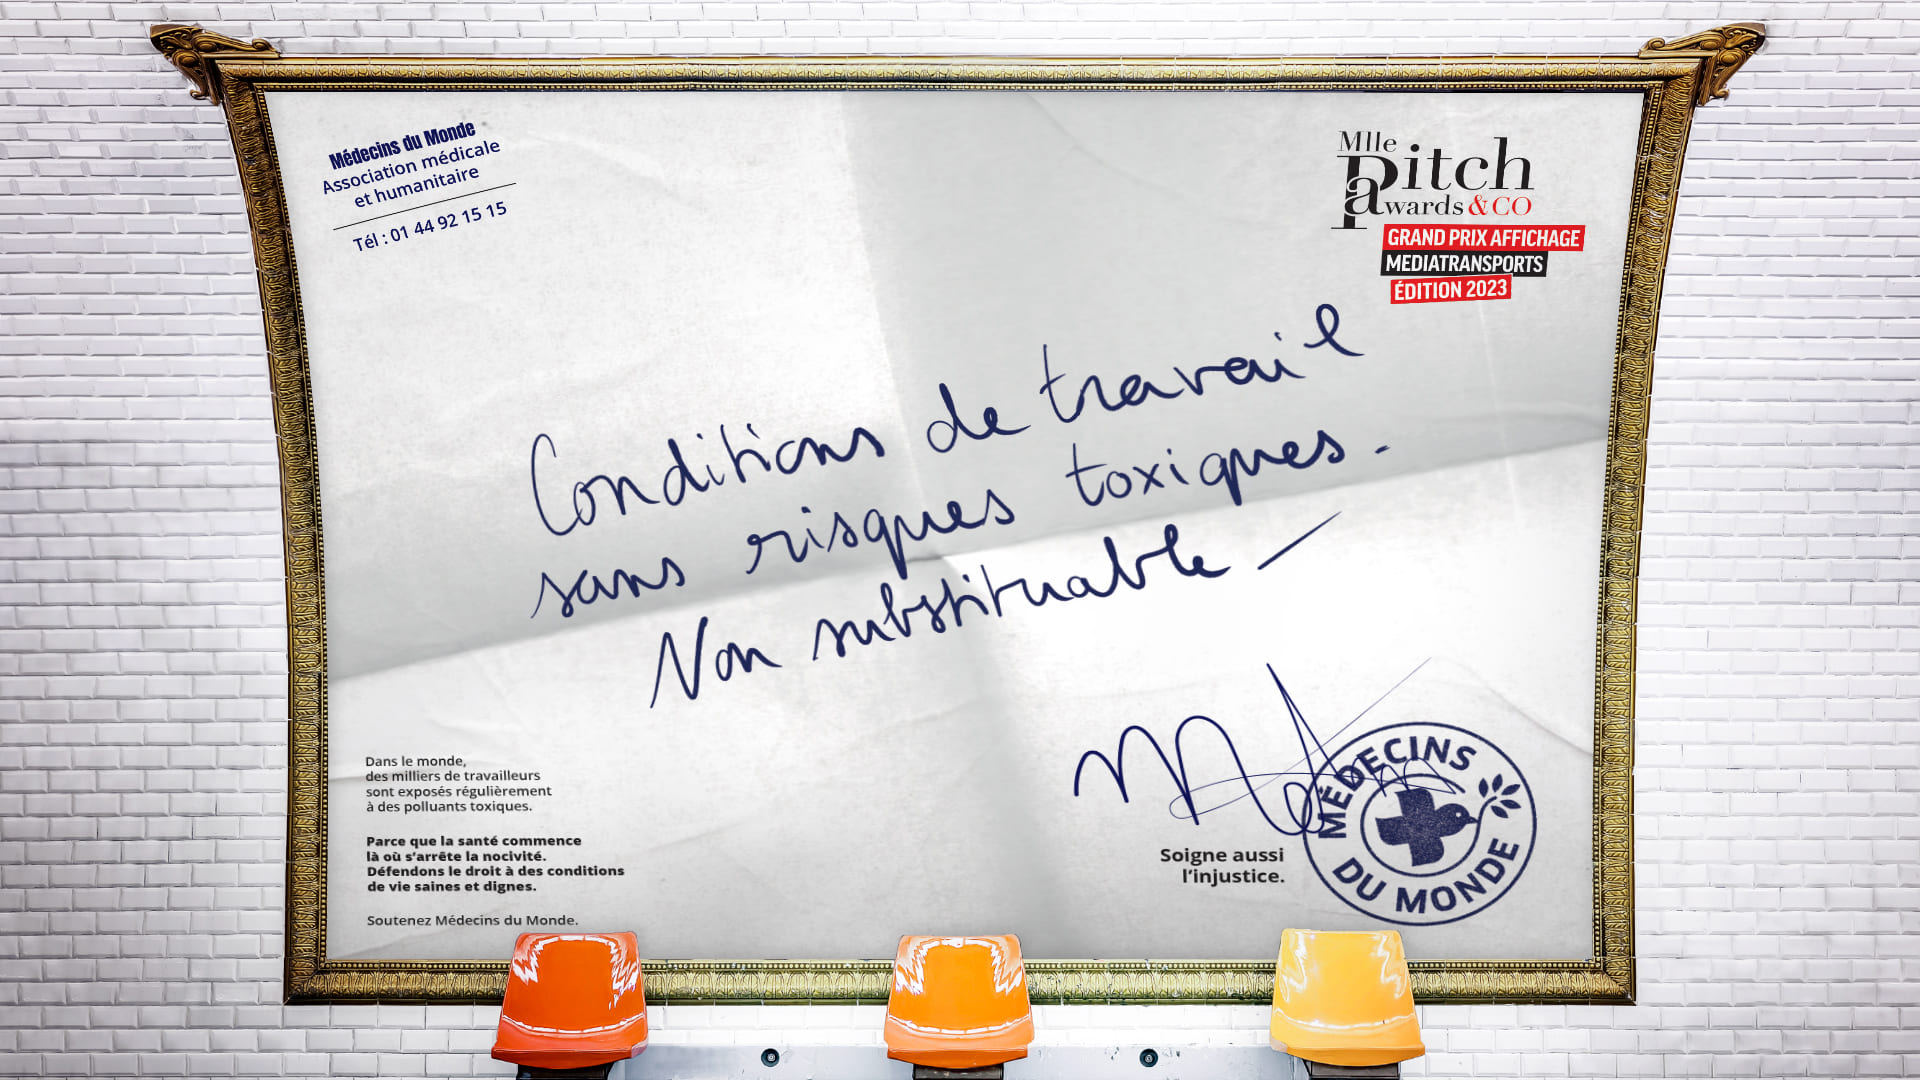 Médecins du Monde
Association médicale
et humanitaire
Tél : 01 44 92 15 15
Mlle
Pitch
awards & CO
GRAND PRIX AFFICHAGE
MEDIATRANSPORTS
ÉDITION 2023
Conditions de travail
sans risques toxiques.
Non substituable
Dans le monde,
des milliers de travailleurs
sont exposés régulièrement
à des polluants toxiques.
Parce que la santé commence
là où s'arrête la nocivité.
Défendons le droit à des conditions
de vie saines et dignes.
Soutenez Médecins du Monde.
Soigne aussi
l'injustice.
MÉDECINS
DU MONDE